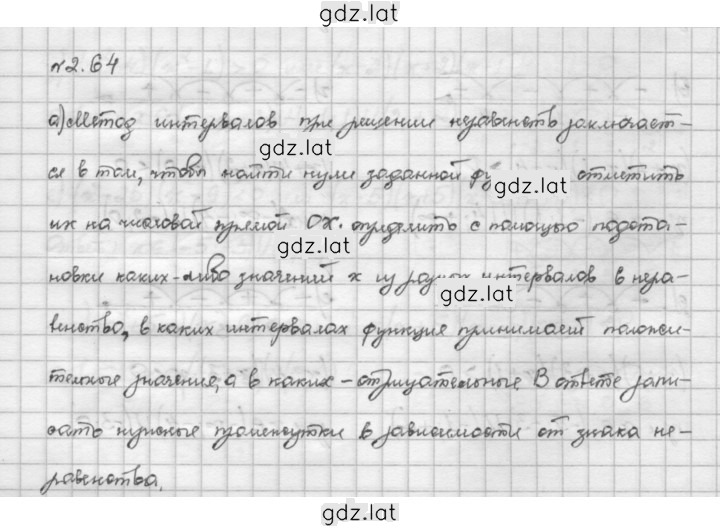 gdz.lat
№2.64
а) Метод интервалов при решении неравенств заключает-
gdz.lat
ся в том, чтобы найти нули заданной фу отметить
gdz.lat
их на числовой прямой OX. определить с помощью подста-
gdz.lat
новки каких-либо значений x из разных интервалов в нера-
gdz.lat
венство, в каких интервалах функция принимает положи-
тельные значения, а в каких - отрицательные. В ответе запи-
сать нужные промежутки в зависимости от знака не-
равенства.
gdz.lat